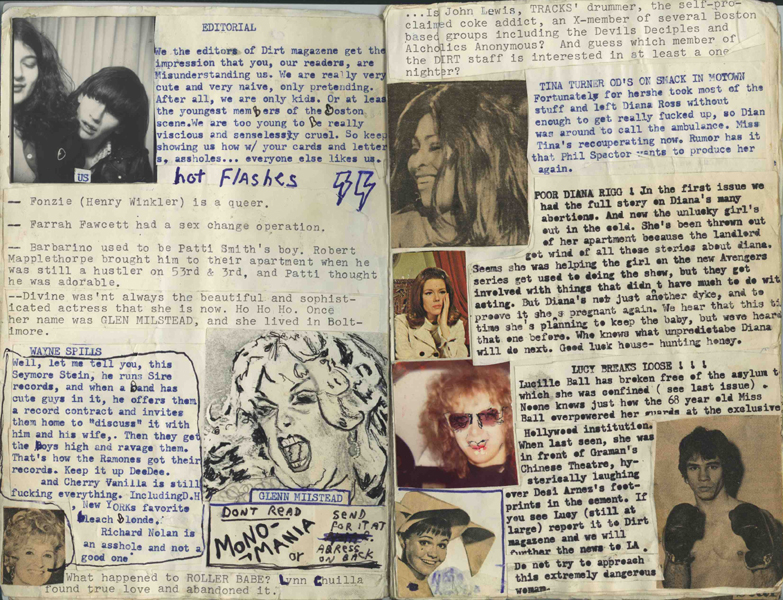 EDITORIAL
We the editors of Dirt magazene get the
impression that you, our readers, are
Misunderstanding us. We are really very
cute and very naive, only pretending.
After all, we are only kids. Or at leas
the youngest members of the Boston
scene.We are too young to Be really
viscious and senselessly cruel. So keep
showing us how w/ your cards and letter
s, assholes... everyone else likes us.
US
hot FlAsHes
— Fonzie (Henry Winkler) is a queer.
— Farrah Fawcett had a sex change operation.
— Barbarino used to be Patti Smith's boy. Robert
Mapplethorpe brought him to their apartment when he
was still a hustler on 53rd & 3rd, and Patti thought
he was adorable.
--Divine was'nt always the beautiful and sophist-
icated actress that she is now. Ho Ho Ho. Once
her name was GLEN MILSTEAD, and she lived in Bolt-
imore.
WAYNE SPILLS
Well, let me tell you, this
Seymore Stein, he runs Sire
records, and when a Band has
cute guys in it, he offers them
a record contract and invites
them home to "discuss" it with
him and his wife,. Then they get
the Boys high and ravage them.
That's how the Ramones got their
records. Keep it up DeeDee.
and Cherry Vanilla is still
fucking everything. IncludingD.H
, NewYORKs favorite
Bleach Blonde.
Richard Nolan is
an asshole and not a
good one
GLENN MILSTEAD
DON'T READ
MONO-
MANIA
or
SEND
FOR IT AT
ADRESS
ON BACK
What happened to ROLLER BABE? Lynn Chuilla
found true love and abandoned it.
...Is John Lewis, TRACKS' drummer, the self-pro-
claimed coke addict, an X-member of several Boston
based groups including the Devils Deciples and
Alcholics Anonymous? And guess which member of
the DIRT staff is interested in at least a one
nighter?
TINA TURNER OD'S ON SMACK IN MOTOWN
Fortunately for hershe took most of the
stuff and left Diana Ross without
enough to get really fucked up, so Dian
was around to call the ambulance. Miss
Tina's recouperating now. Rumor has it
that Phil Spector wants to produce her
again.
POOR DIANA RIGG ! In the first issue we
had the full story on Diana's many
abortions. And now the unlucky girl's
out in the cold. She's been thrown out
of her apartment because the landlord
got wind of all these stories about diana.
Seems she was helping the girl on the new Avengers
series get used to doing the show, but they got
involved with things that didn't have much to do wit
acting. But Diana's not just another dyke, and to
proove it she's pregnant again. We hear that this ti
time she's planning to keep the baby, but weve heard
that one before. Who knows what unpredictabe Diana
will do next. Good luck house- hunting honey.
LUCY BREAKS LOOSE ! ! !
Lucille Ball has broken free of the asylum t
which she was confined ( see last issue) .
Noone knows just how the 68 year old Miss
Ball overpowered her guards at the exclusive
Hollywood institution.
When last seen, she was
in front of Graman's
Chinese Theatre, hy-
sterically laughing
over Desi Arnez's foot-
prints in the cement. If
you see Lucy (still at
large) report it to Dirt
magazene and we will
further the news to LA .
Do not try to approach
this extremely dangerous
woman.